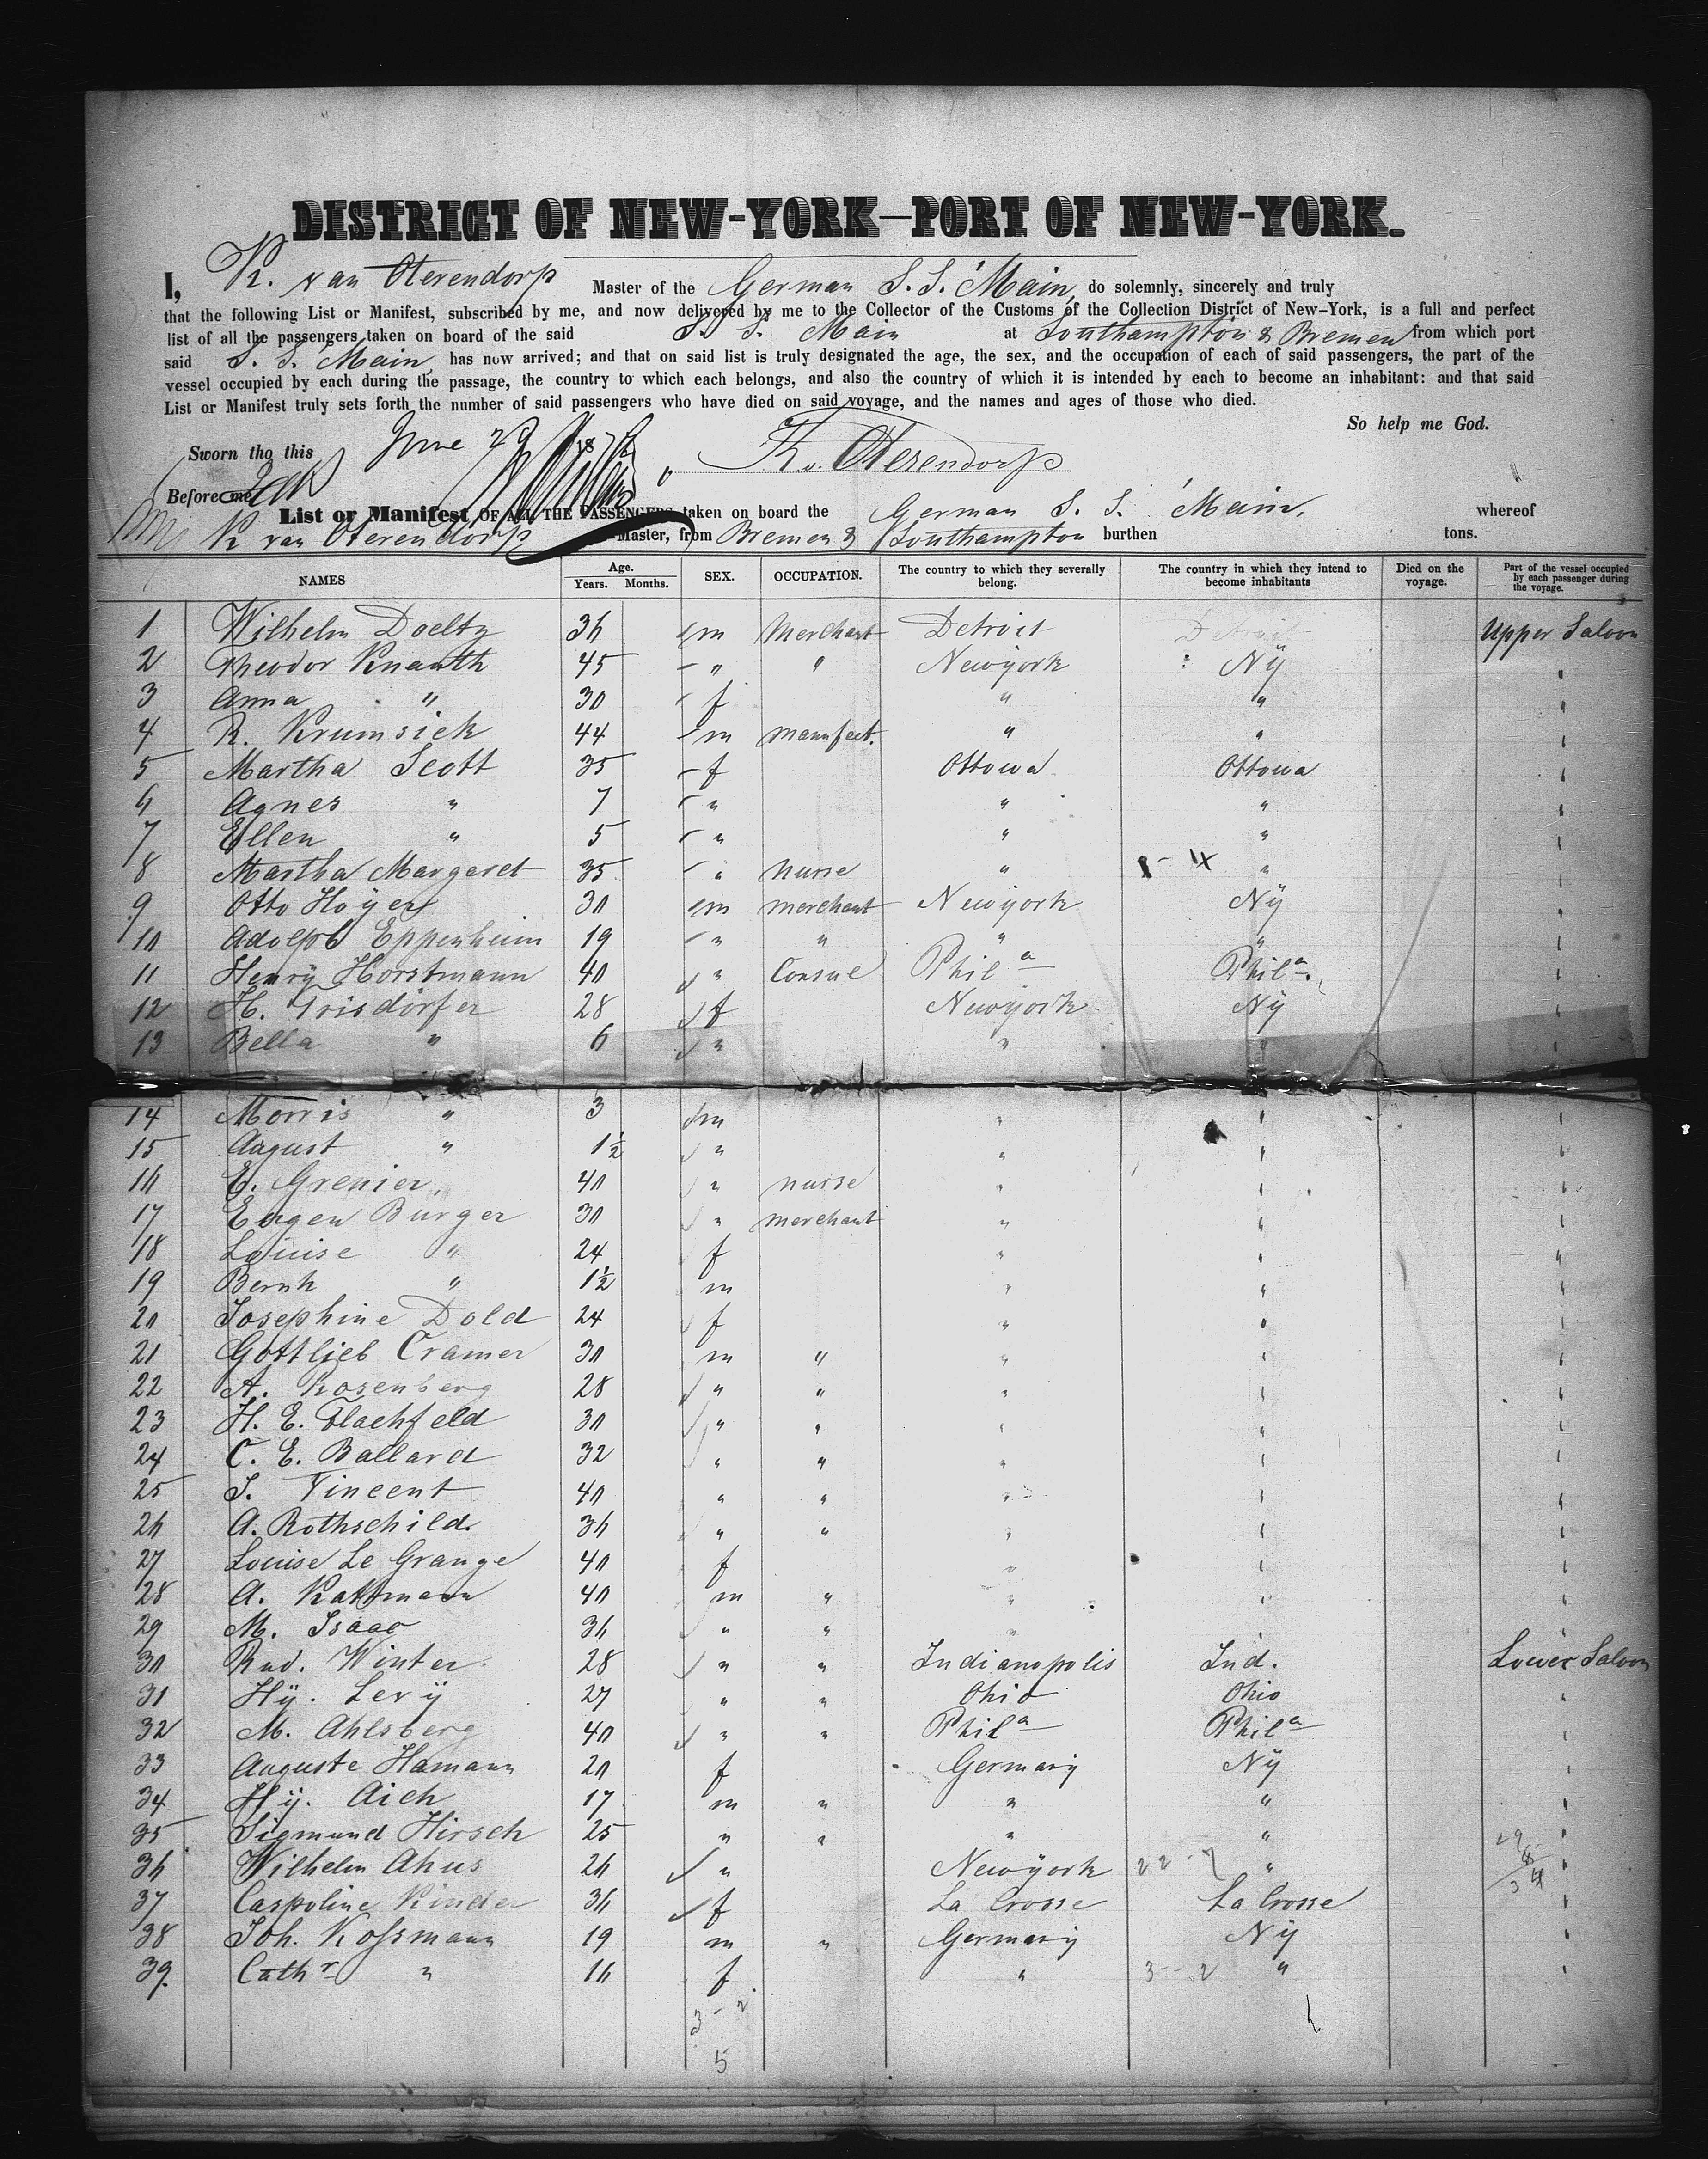 DISTRICT OF NEW-YORK—PORT OF NEW-YORK.
I, K. van Oterendorp Master of the German S. S. "Main", do solemnly, sincerely and truly
that the following List or Manifest, subscribed by me, and now delivered by me to the Collector of the Customs of the Collection District of New-York, is a full and perfect
list of all the passengers taken on board of the said S. S. Main at Southampton & Bremen from which port
said S. S. Main, has now arrived; and that on said list is truly designated the age, the sex, and the occupation of each of said passengers, the part of the
vessel occupied by each during the passage, the country to which each belongs, and also the country of which it is intended by each to become an inhabitant: and that said
List or Manifest truly sets forth the number of said passengers who have died on said voyage, and the names and ages of those who died.
So help me God.
Sworn tho this June 29 187 K. v. Oterendorp
Before me
List or Manifest OF ALL THE PASSENGERS taken on board the German S. S. Main. whereof
K van Oterendorp Master, from Bremen & Southampton burthen tons.
NAMES Age. Years. Months. SEX. OCCUPATION. The country to which they severally belong. The country in which they intend to become inhabitants Died on the voyage. Part of the vessel occupied by each passenger during the voyage.
1 Wilhelm Doeltz 36 m Merchant Detroit Detroit Upper Saloon
2 Theodor Knauth 45 " " Newÿork Nÿ "
3 Anna " 30 f " " "
4 R. Krumsick 44 m manufact. " " "
5 Martha Scott 35 f Ottowa Ottowa "
6 Agnes " 7 " " " "
7 Ellen " 5 " " " "
8 Martha Margaret 35 " nurse " 1 - 4 " "
9 Otto Höyer 30 m merchant Newÿork Nÿ "
10 Adolph Eppenheim 19 " " " " "
11 Henrÿ Horstmann 40 " Consul Phila Phila. "
12 H. Trisdorfer 28 f Newÿork Nÿ "
13 Bella " 6 " " " "
14 Morris " 3 m " " "
15 August " 1½ " " " "
16 E. Grenier. 40 " nurse " " "
17 Eugen Burger 30 " merchant " " "
18 Louise " 24 f " " "
19 Bernh " 1½ m " " "
20 Josephine Dold 24 f " " "
21 Gottlieb Cramer 30 m " " " "
22 A. Rosenberg 28 " " " " "
23 H. E. Flachfeld 30 " " " " "
24 C. E. Ballard 32 " " " " "
25 J. Vincent 40 " " " " "
26 A. Rothschild. 36 " " " " "
27 Louise Le Grange 40 f " " "
28 A. 40 m " " " "
29 M. Isaac 36 " " " " "
30 Rud. Winter. 28 " " Indianopolis Ind. Lower Saloon
31 Hÿ. Levÿ 27 " " Ohio Ohio "
32 M. Ahlsberg 40 " " Phila Phila "
33 Auguste Hamann 20 f Germany Nÿ "
34 Hÿ. Aich 17 m " " " "
35 Sigmund Hirsch 25 " " " " "
36 Wilhelm Ahus 26 " Newÿork 22 - 7 "
37 Caspoline Kinder 36 f La Crosse La Crosse "
38 Joh. Koſsmann 19 m " Germany Nÿ "
39. Cathr " 16 f " 3 - 2 " "
3 - 2
5